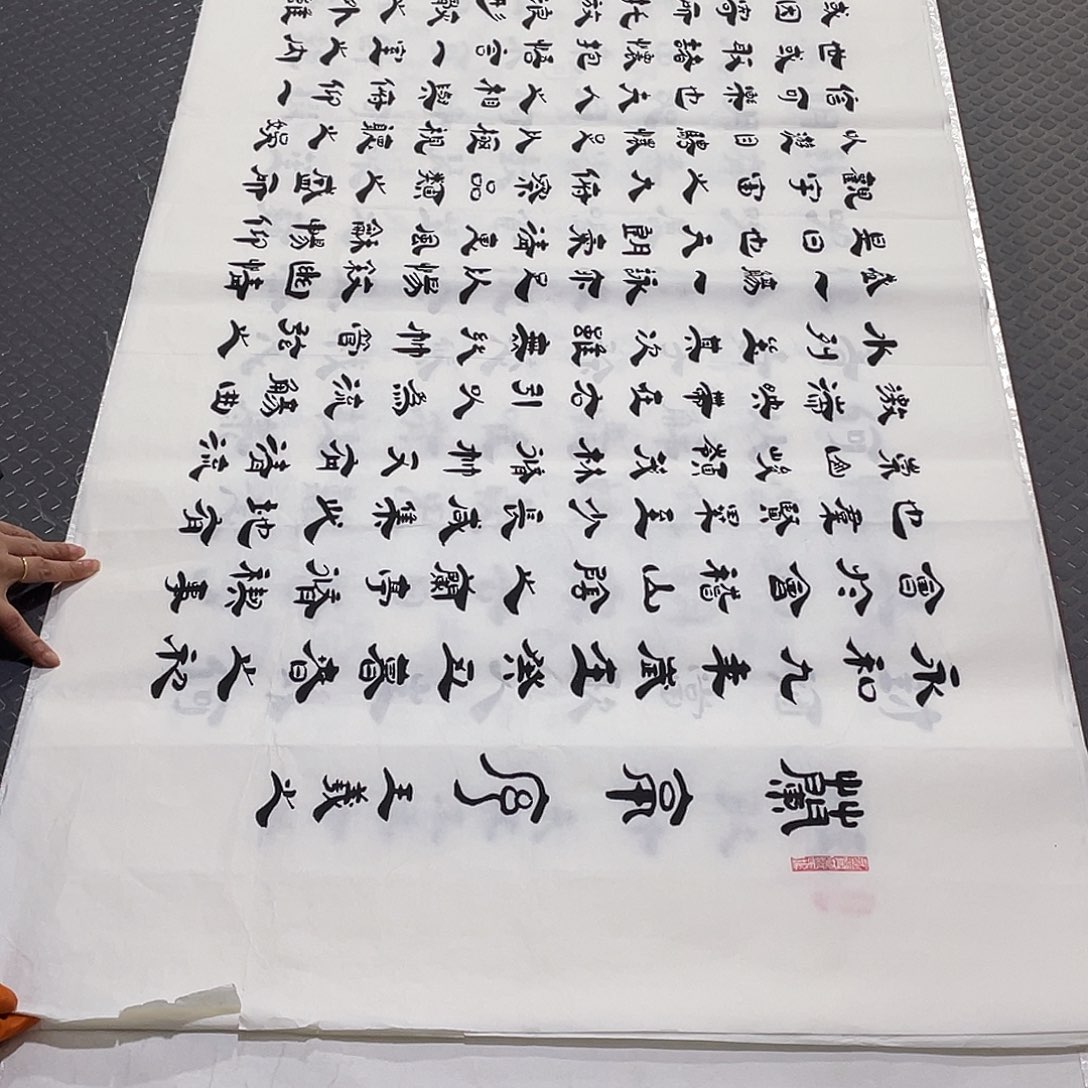 蘭亭序 王羲之
永和九年歲在癸丑暮春之初
會於會稽山陰之蘭亭脩禊事
也羣賢畢至少長咸集此地有
崇山峻領茂林脩竹又有清流
激湍映帶左右引以為流觴曲
水列坐其次雖無絲竹管弦之
盛一觴一詠亦足以暢敘幽情
是日也天朗氣清惠風和暢仰
觀宇宙之大俯察品類之盛所
以遊目騁懷足以極視聽之娛
信可樂也夫人之相與俯仰一
世或取諸懷抱悟言一室之內
或因寄所託放浪形骸之外雖